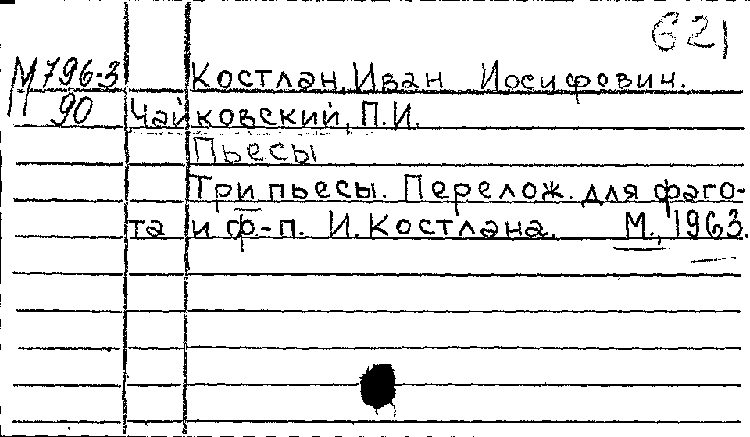 621
М796-3 Костлан, Иван Иосифович.
90 Чайковский, П.И.
Пьесы
Три пьесы. Перелож. для фаго-
та и ф.-п. И. Костлана. М., 1963.